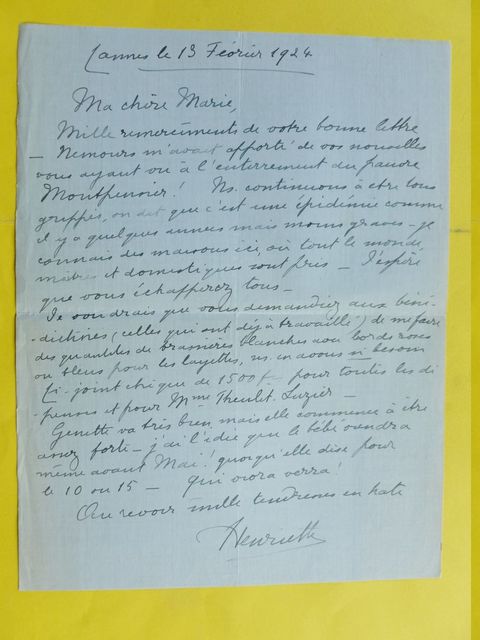 Cannes le 13 Février 1924
Ma chère Marie,
Mille remerciments de votre bonne lettre
— Nemours m'avait apporté de vos nouvelles
vous ayant vu à l'enterrement du pauvre
Montpensier! Ns. continuons à être tous
grippés, on dit que c'est une épidémie comme
il y a quelques années mais moins graves — je
connais des maisons ici, où tout le monde,
maîtres et domestiques sont pris — J'espère
que vous échapperez tous —
Je voudrais que vous demandiez aux béné-
-dictines, (celles qui ont déjà travaillé) de me faire
des quantités de brassières blanches avec bords roses
ou bleus pour les layettes, ns. en avons si besoin
Ci-joint chèque de 1500 f pour toutes les dé
-penses et pour Mme Theulet-Luzier —
Genette va très bien, mais elle commence à être
assez forte — j'ai l'idée que le bébé viendra
même avant Mai! quoiqu'elle dise pour
le 10 ou 15 — qui vivra verra!
Au revoir mille tendresses en hate
Henriette